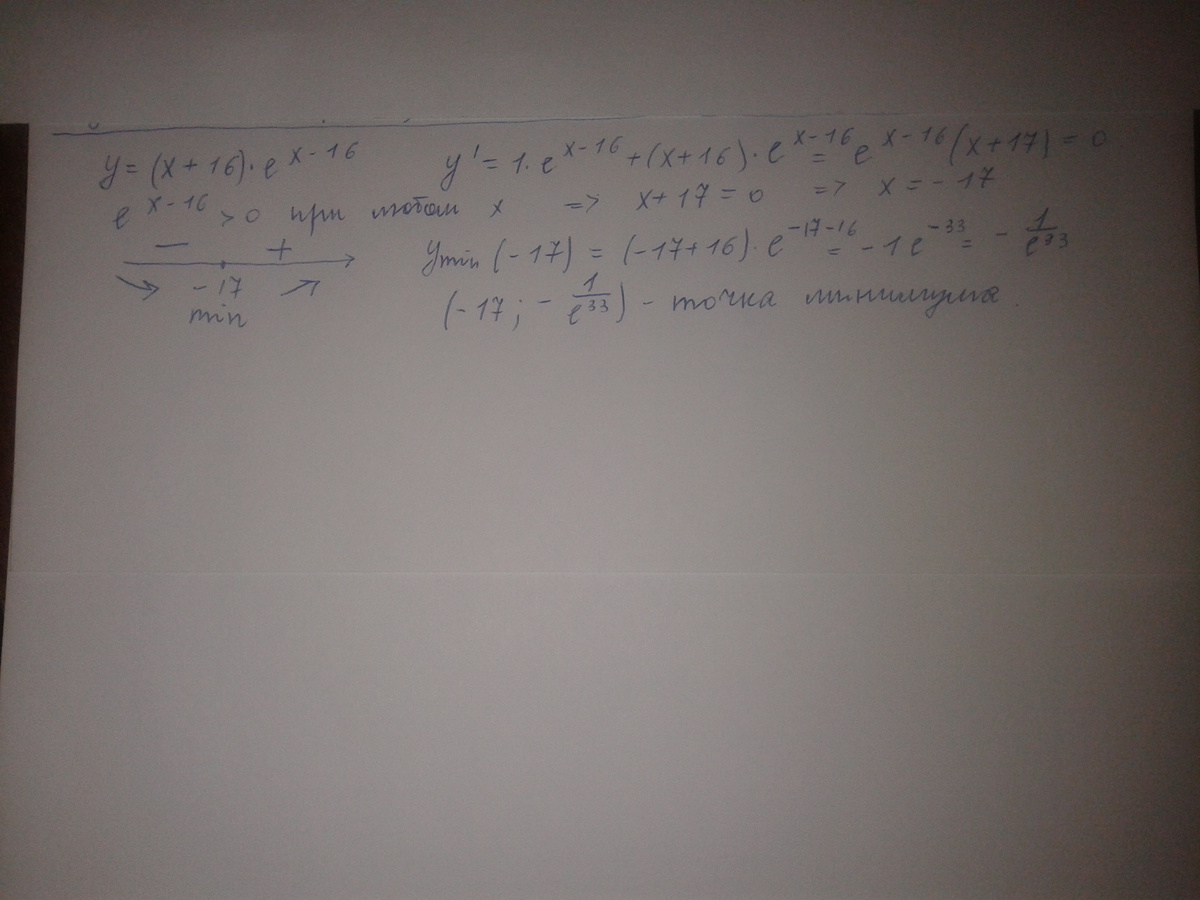 y = (x+16)·e^{x-16} y' = 1·e^{x-16} + (x+16)·e^{x-16} = e^{x-16}(x+17) = 0
e^{x-16} > 0 при любом x => x+17 = 0 => x = -17
− + y min (-17) = (-17+16)·e^{-17-16} = -1e^{-33} = -1/e^{33}
-17
min (-17; -1/e^{33}) - точка минимума.